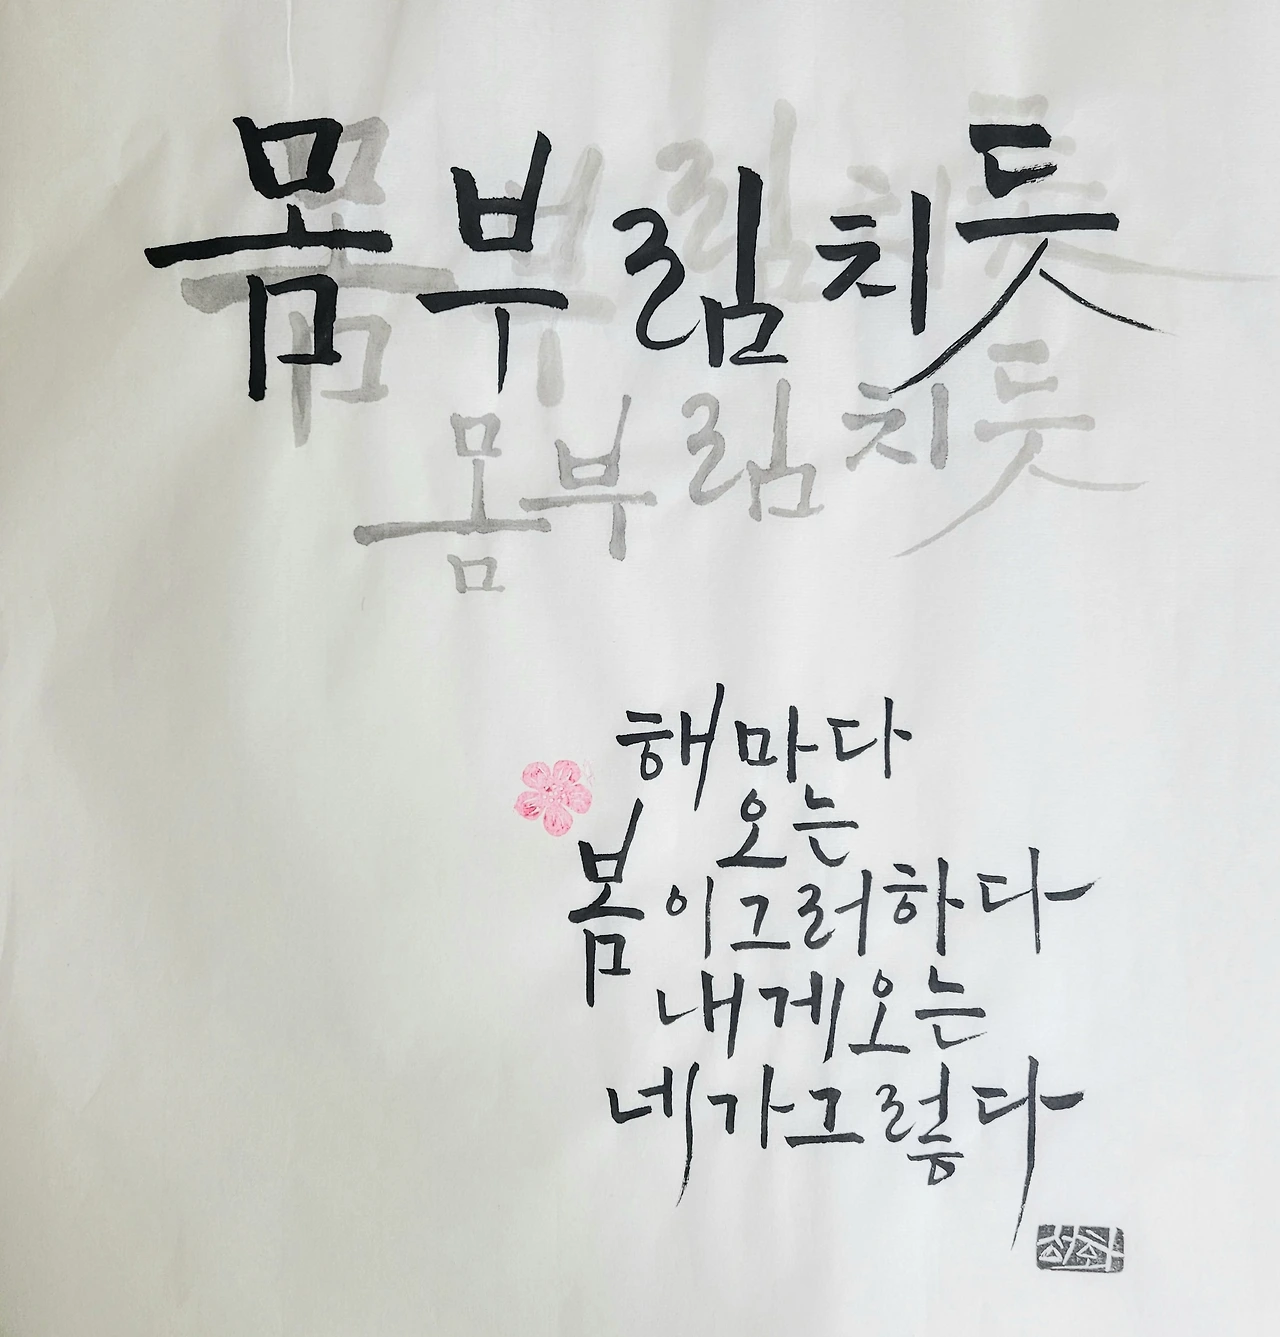 몸부림치듯
몸부림치듯
몸부림치듯
해마다
오는
봄이그러하다
내게오는
네가그렇다